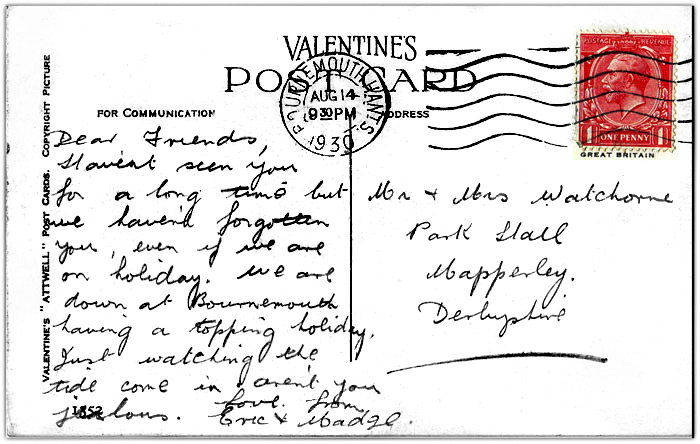 VALENTINE'S
POST CARD
FOR COMMUNICATION
ADDRESS
BOURNEMOUTH, HANTS
AUG 14
9 30 PM
1930
POSTAGE REVENUE
ONE PENNY
1 1
GREAT BRITAIN
VALENTINE'S "ATTWELL" POST CARDS. COPYRIGHT PICTURE
Dear Friends,
Haven't seen you
for a long time but
we haven't forgotten
you, even if we are
on holiday. We are
down at Bournemouth
having a topping holiday.
Just watching the
tide come in aren't you
jealous. Love from
Eric & Madge.
1352
Mr & Mrs Watchorne
Park Hall
Mapperley.
Derbyshire